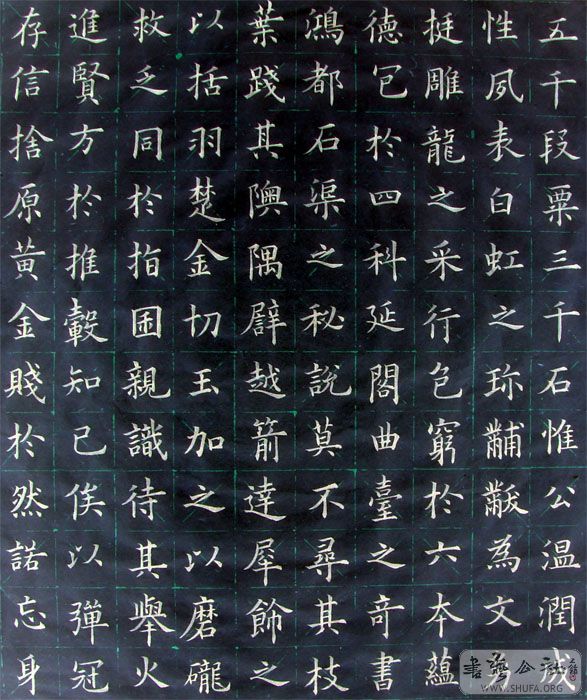 五千段粟三千石惟公温潤成
性夙表白虹之珎黼黻為文
挺雕龍之采行包窮於六本蘊
德於四科延閣曲臺之竒書
鴻都石渠之秘說莫不尋其枝
葉踐其隩隅譬越箭達犀飾之
以括羽楚金切玉加之以磨礲
救乏同於指囷親識待其舉火
進賢方於推轂知己俟以彈冠
存信捨原黃金賤於然諾忘身
書藝公社
WWW.SHUFA.ORG